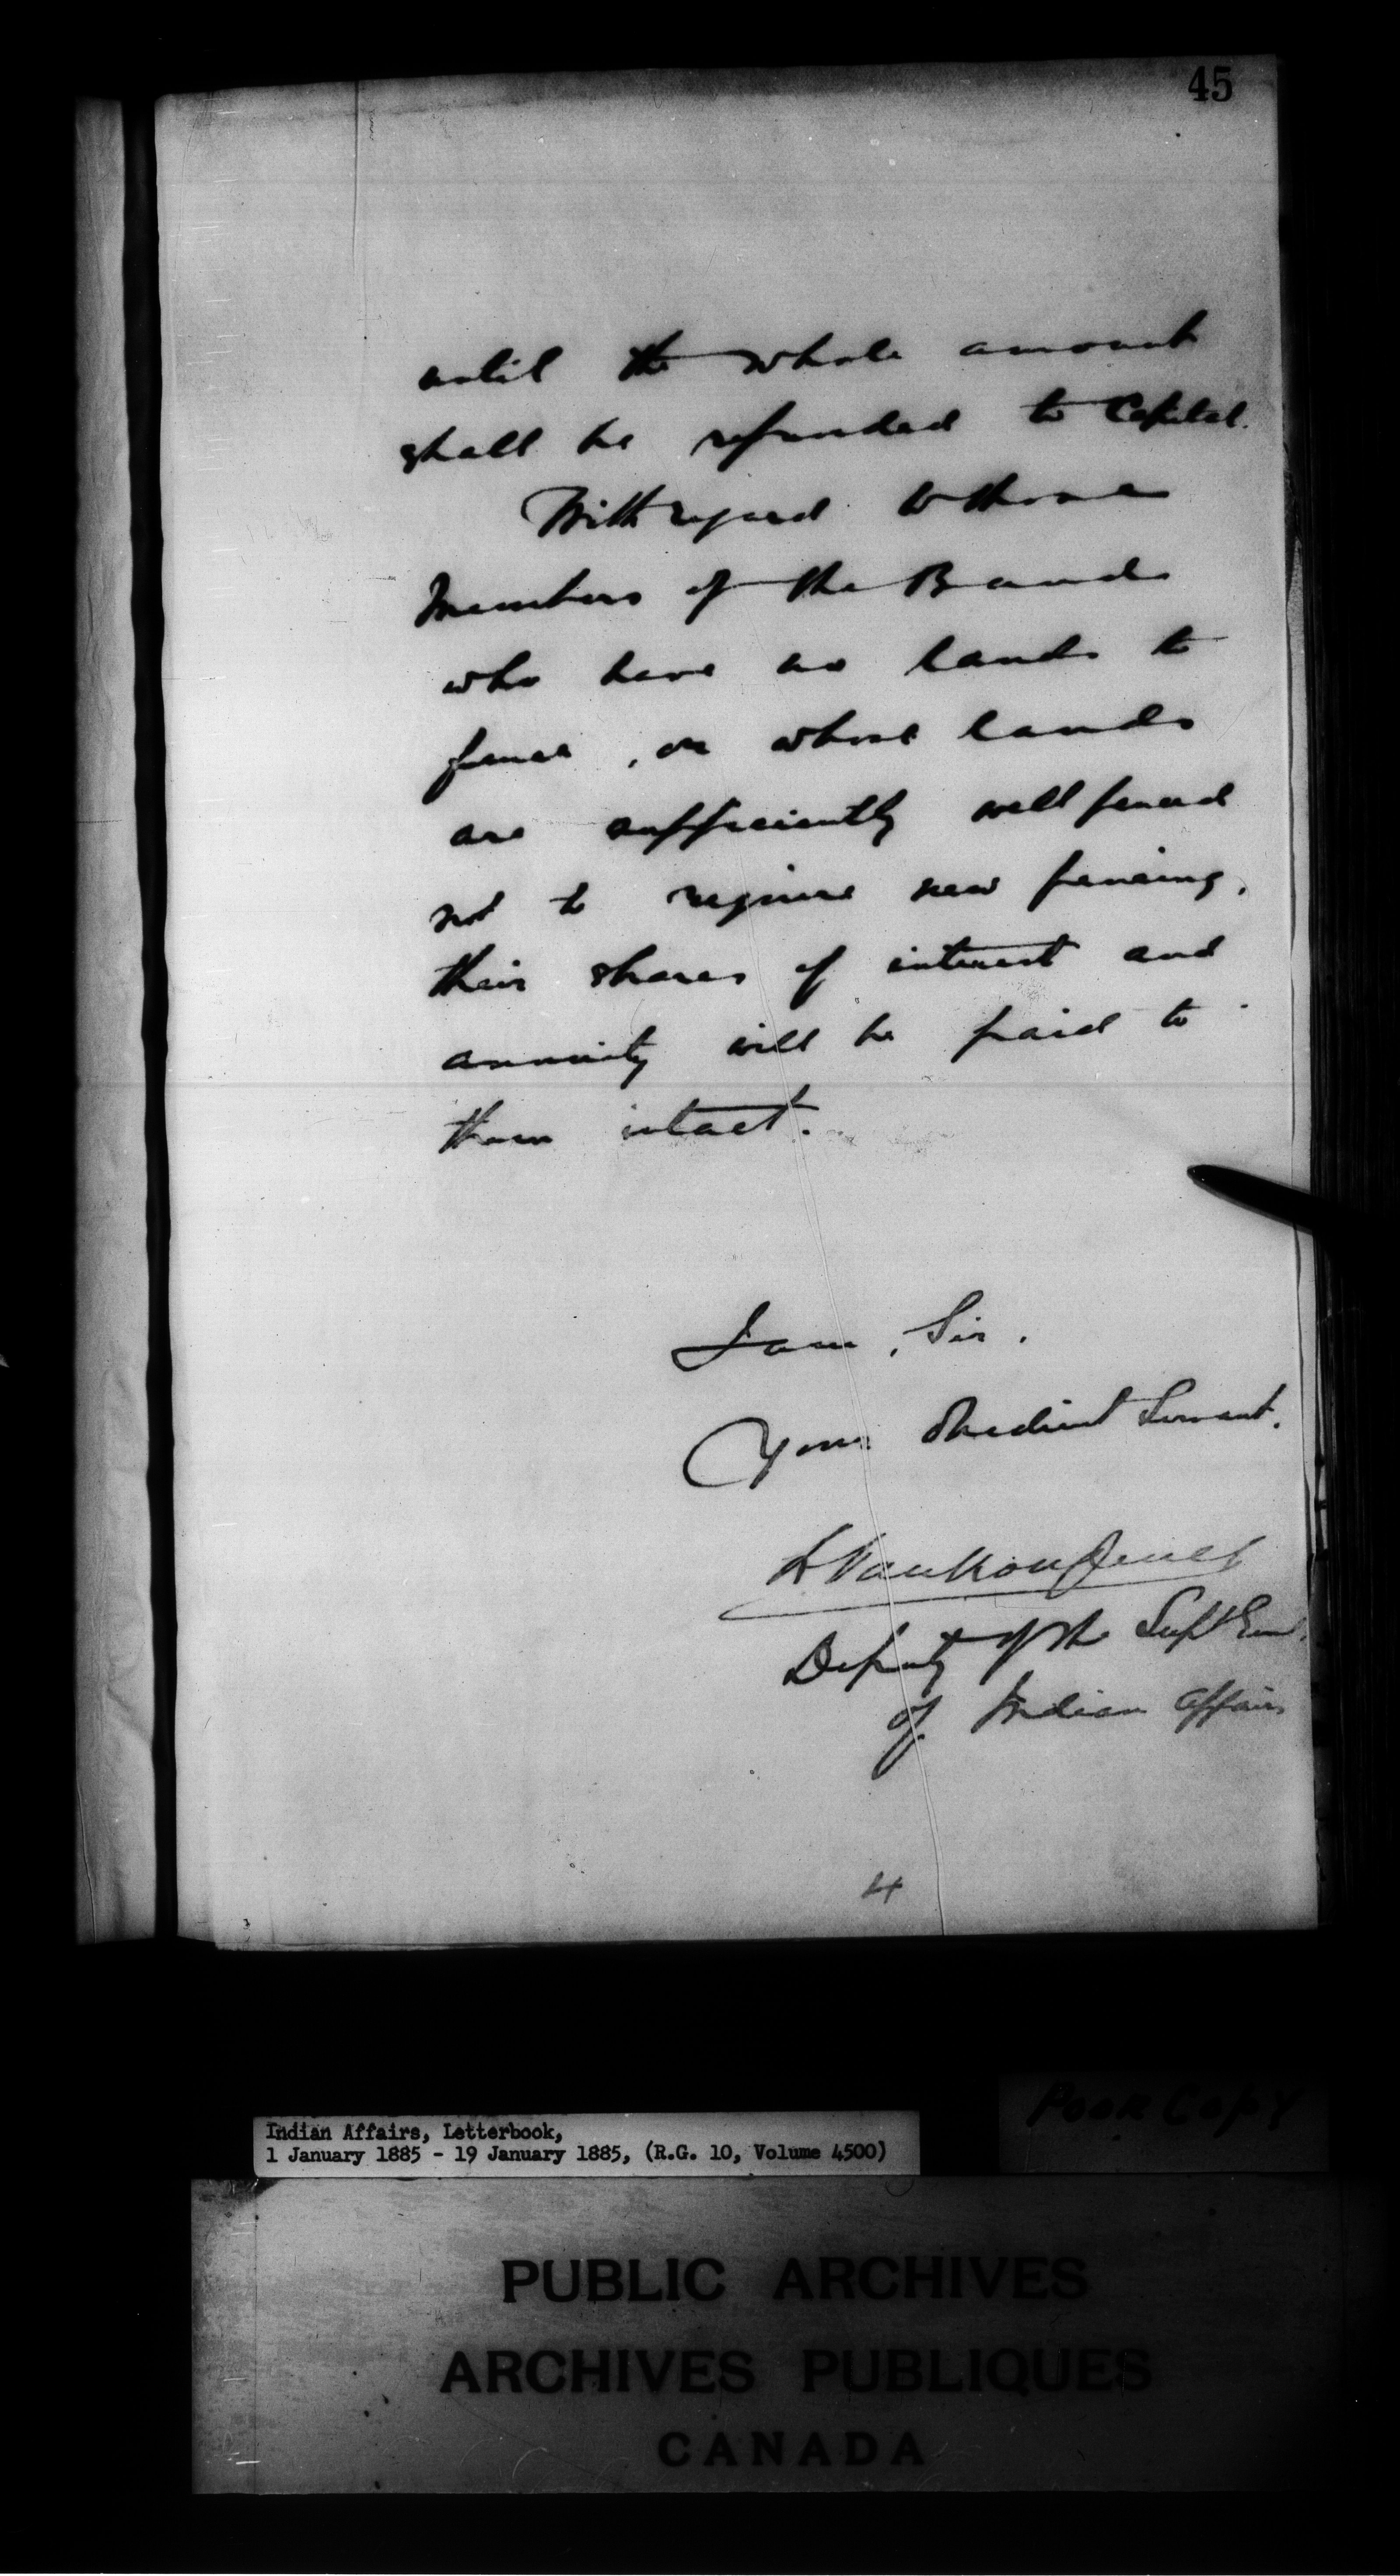 45
until the whole amount
shall be refunded to Capital.
With regard to those
Members of the Bands
who have no lands to
fence, or whose lands
are sufficiently well fenced
not to require new fencing,
their shares of interest and
annuity will be paid to
them intact.
I am, Sir,
Your obedient Servant.
L VanKoughnet
Deputy of the Supt Genl.
of Indian Affairs
4
Poor Copy
Indian Affairs, Letterbook,
1 January 1885 - 19 January 1885, (R.G. 10, Volume 4500)
PUBLIC ARCHIVES
ARCHIVES PUBLIQUES
CANADA